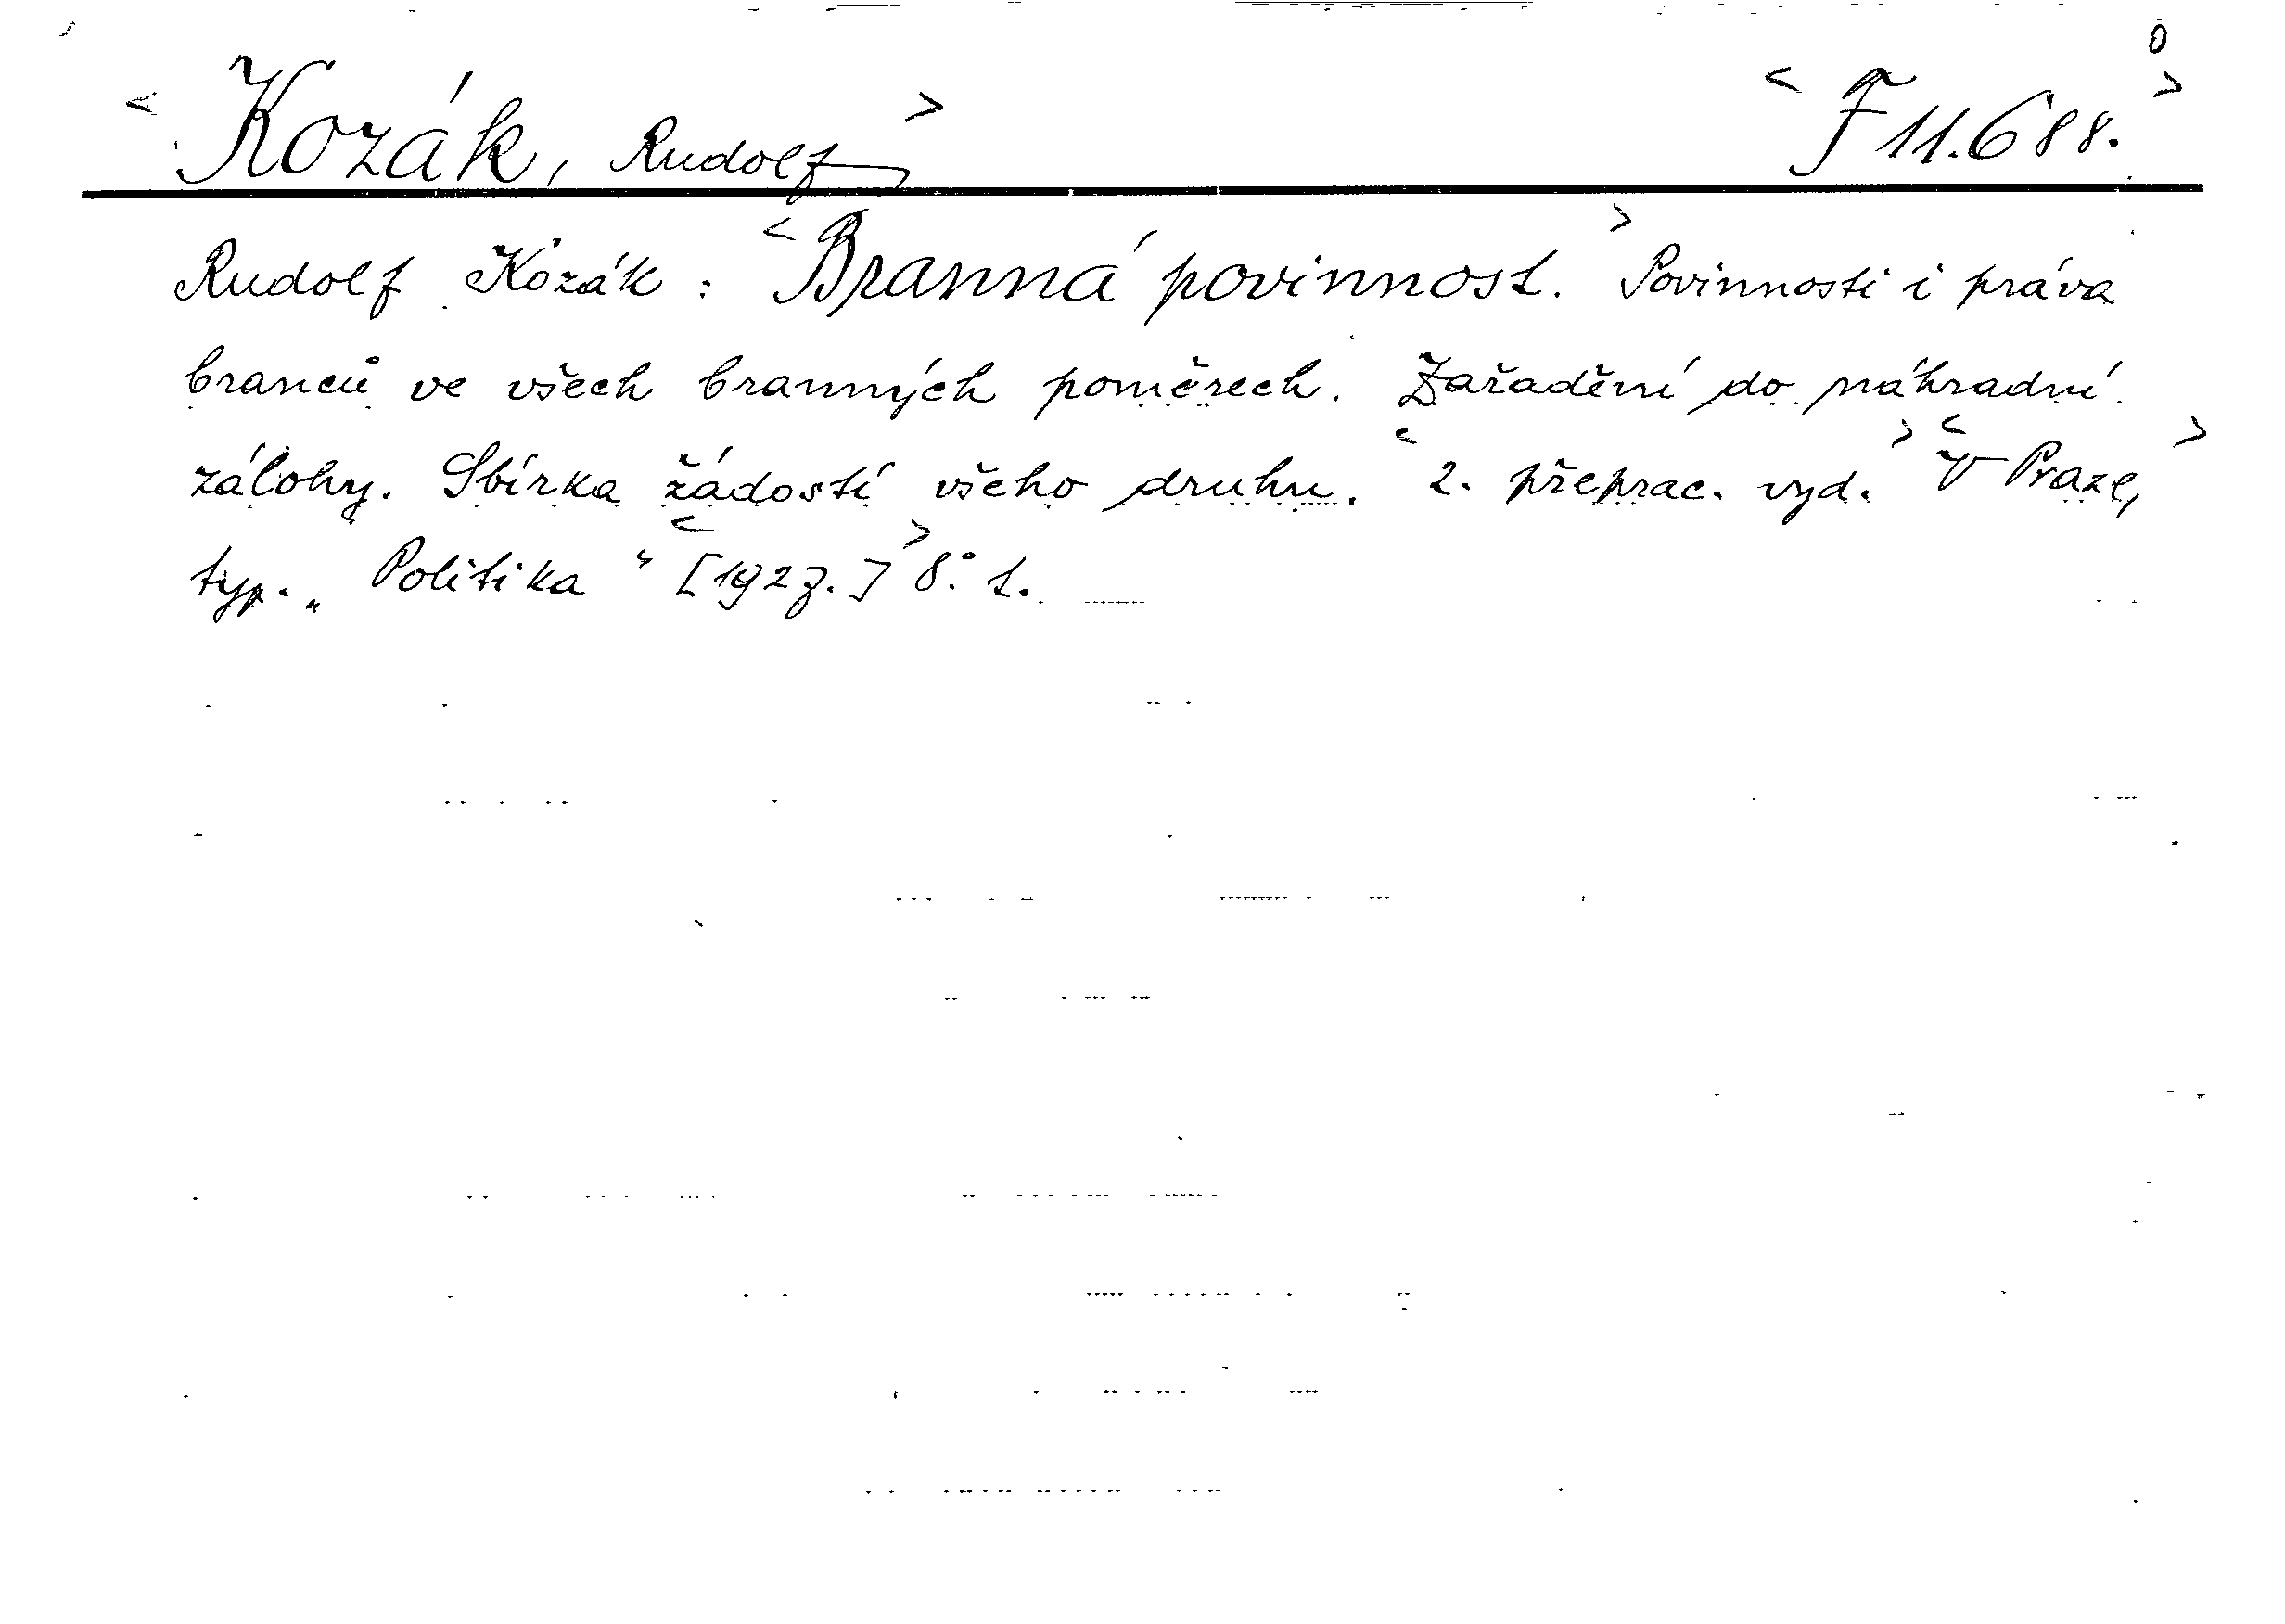 0
< Kozák, Rudolf > < F 11.688. >
Rudolf Kozák : < Branná povinnost. > Povinnosti i práva
branců ve všech branných poměrech. Zařadění do náhradní
zálohy. Sbírka žádostí všeho druhu. < 2. přeprac. vyd. > < V Praze, >
typ. „Politika“ < [1927.] > 8.° 1.